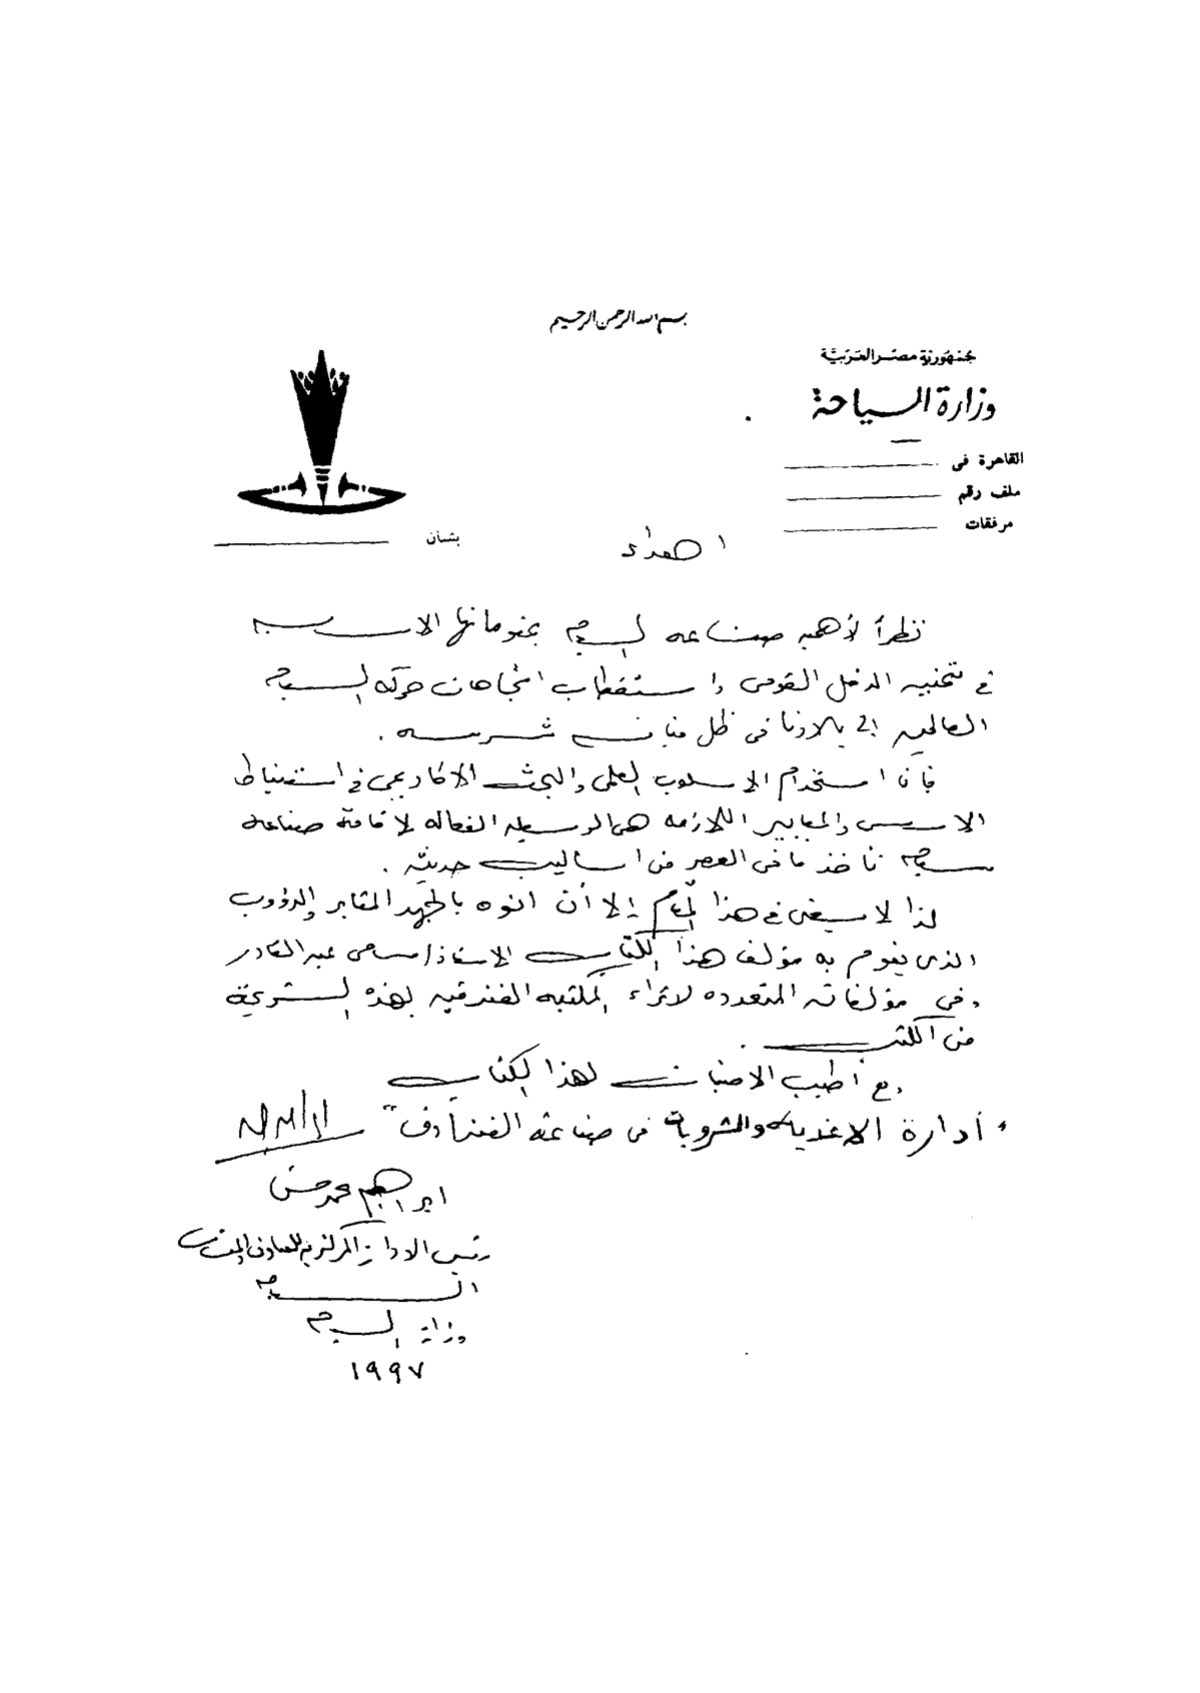 بسم الله الرحمن الرحيم
جمهورية مصر العربية
وزارة السياحة
القاهرة فى
ملف رقم
مرفقات
بشأن
اهداء
نظراً لأهميه صناعه السياحه بمقوماتها الاساسيه
فى تنميه الدخل القومى واستقطاب اتجاهات حركه السياحه
العالميه الى بلادنا فى ظل منافسه شرسه .
فإن استخدام الاسلوب العلمى والبحث الاكاديمى فى استنباط
الاسس والمعايير اللازمه هى الوسيله الفعاله لاقامة صناعه
سياحه تأخذ ما فى العصر من اساليب حديثه .
لذا لا يسعنى فى هذا المقام إلا أن انوه بالجهد المثابر والدؤوب
الذى يقوم به مؤلف هذا الكتاب الاستاذ / سامى عبد القادر
وفى مؤلفاته المتعدده لاثراء المكتبه الفندقيه بهذه النوعية
من الكتب .
مع أطيب الامنيات لهذا الكتاب
" أدارة الاغذية والمشروبات فى صناعة الفنادق "
ابراهيم محمد حسن
رئيس الادارة المركزية
السياحه
وزارة السياحه
١٩٩٧